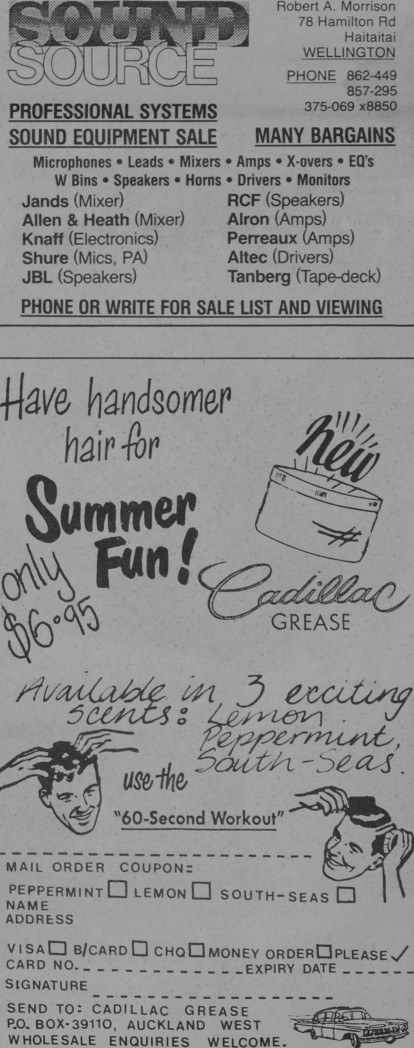 SOUND
SOURCE
Robert A. Morrison
78 Hamilton Rd
Haitaitai
WELLINGTON
PHONE 862-449
857-295
375-069 x8850
PROFESSIONAL SYSTEMS
SOUND EQUIPMENT SALE MANY BARGAINS
Microphones • Leads • Mixers • Amps • X-overs • EQ's
W Bins • Speakers • Horns • Drivers • Monitors
Jands (Mixer)
Allen & Heath (Mixer)
Knaff (Electronics)
Shure (Mics, PA)
JBL (Speakers)
RCF (Speakers)
Alron (Amps)
Perreaux (Amps)
Altec (Drivers)
Tanberg (Tape-deck)
PHONE OR WRITE FOR SALE LIST AND VIEWING
Have handsomer
hair for
Summer
Fun!
only
$6.95
New
Cadillac
GREASE
Available in 3 exciting
scents: Lemon
Peppermint,
South-Seas.
use the
"60-Second Workout"
MAIL ORDER COUPON:
PEPPERMINT LEMON SOUTH-SEAS
NAME
ADDRESS
VISA B/CARD CHQ MONEY ORDER PLEASE ✓
CARD NO. EXPIRY DATE
SIGNATURE
SEND TO: CADILLAC GREASE
P.O. BOX-39110, AUCKLAND WEST
WHOLESALE ENQUIRIES WELCOME.